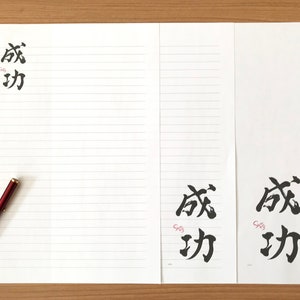 成功
成功
成功